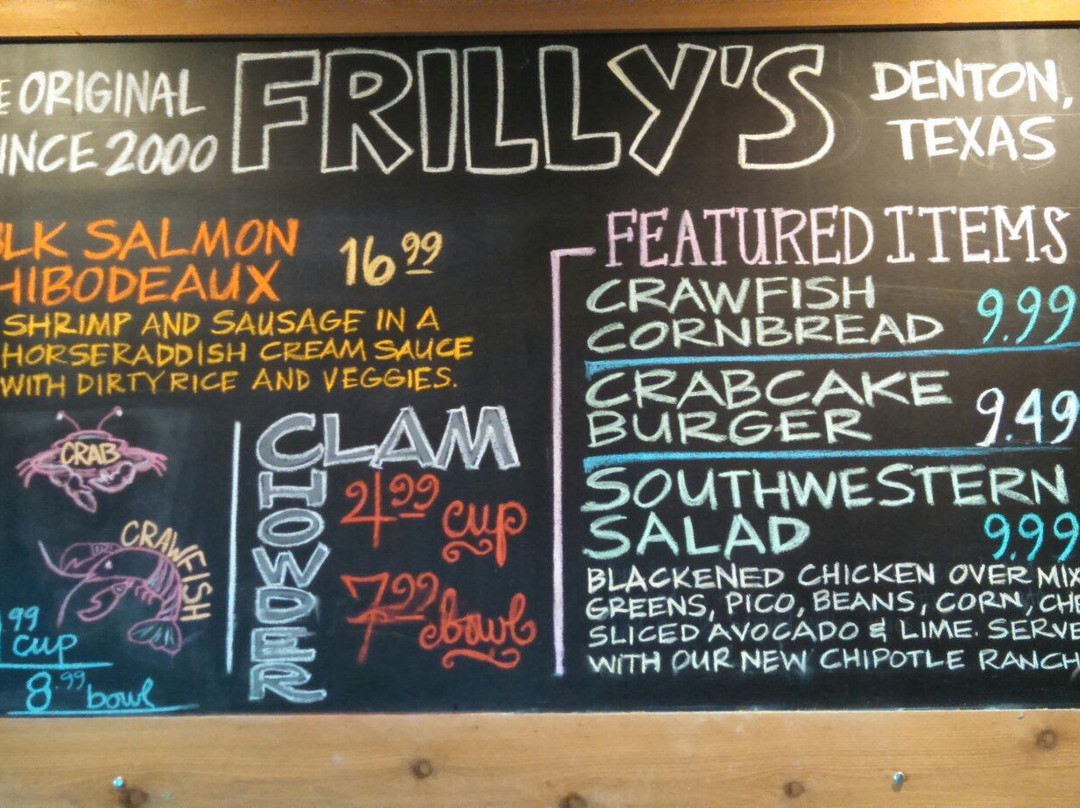 ORIGINAL
2000
FRILLY'S
DENTON,
TEXAS
SALMON
16.99
SHRIMP AND SAUSAGE IN A
HORSERADDISH CREAM SAUCE
WITH DIRTY RICE AND VEGGIES.
CRAB
CRAWFISH
99
cup
8.99 bowl
CLAM
CHOWDER
4.99 cup
7.99 bowl
FEATURED ITEMS
CRAWFISH
CORNBREAD 9.99
CRABCAKE
BURGER 9.49
SOUTHWESTERN
SALAD 9.99
BLACKENED CHICKEN OVER MIX
GREENS, PICO, BEANS, CORN, CHE
SLICED AVOCADO & LIME. SERVE
WITH OUR NEW CHIPOTLE RANCH